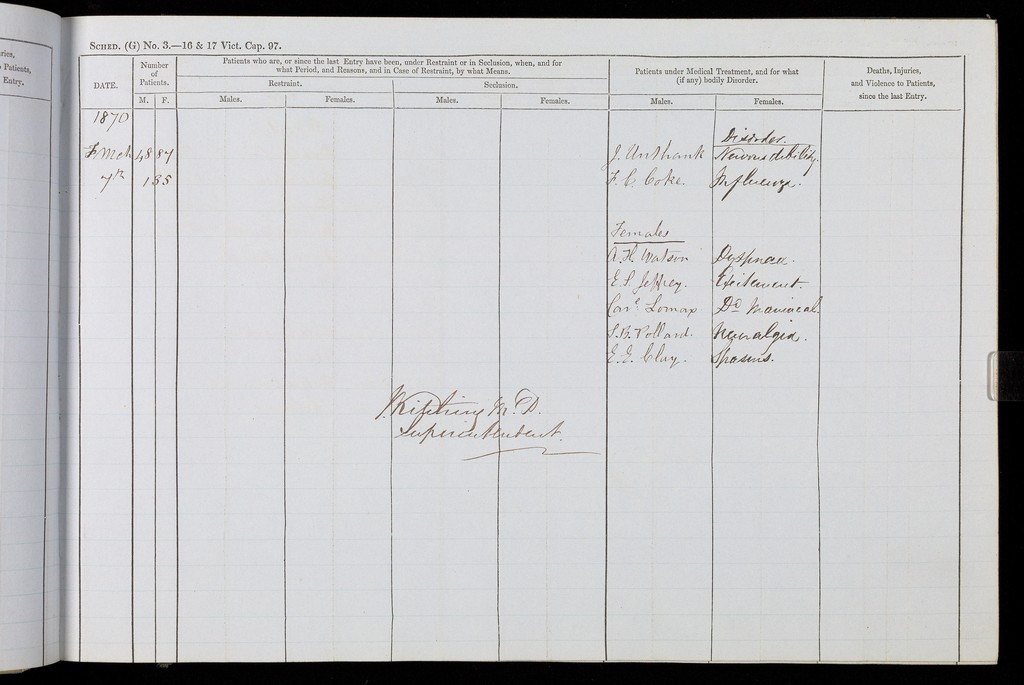 ries,
o Patients,
Entry.
SCHED. (G) No. 3.—16 & 17 Vict. Cap. 97.
DATE.
Number
of
Patients.
M. F.
Patients who are, or since the last Entry have been, under Restraint or in Seclusion, when, and for
what Period, and Reasons, and in Case of Restraint, by what Means.
Restraint.
Seclusion.
Males. Females. Males. Females.
Patients under Medical Treatment, and for what
(if any) bodily Disorder.
Males. Females.
Deaths, Injuries,
and Violence to Patients,
since the last Entry.
1870
Disorder.
Mch 48 87 J. Unthank Nervous debility.
7th 135 F. C. Coke Influenza.
Females
A. H. Watson Dyspnoea.
E. S. Jeffrey. Excitement.
Care Lomax Do Maniacal.
S. B. Pollard. Neuralgia.
E. E. Clay. Spasms.
J. Kitching M.D.
Superintendent.